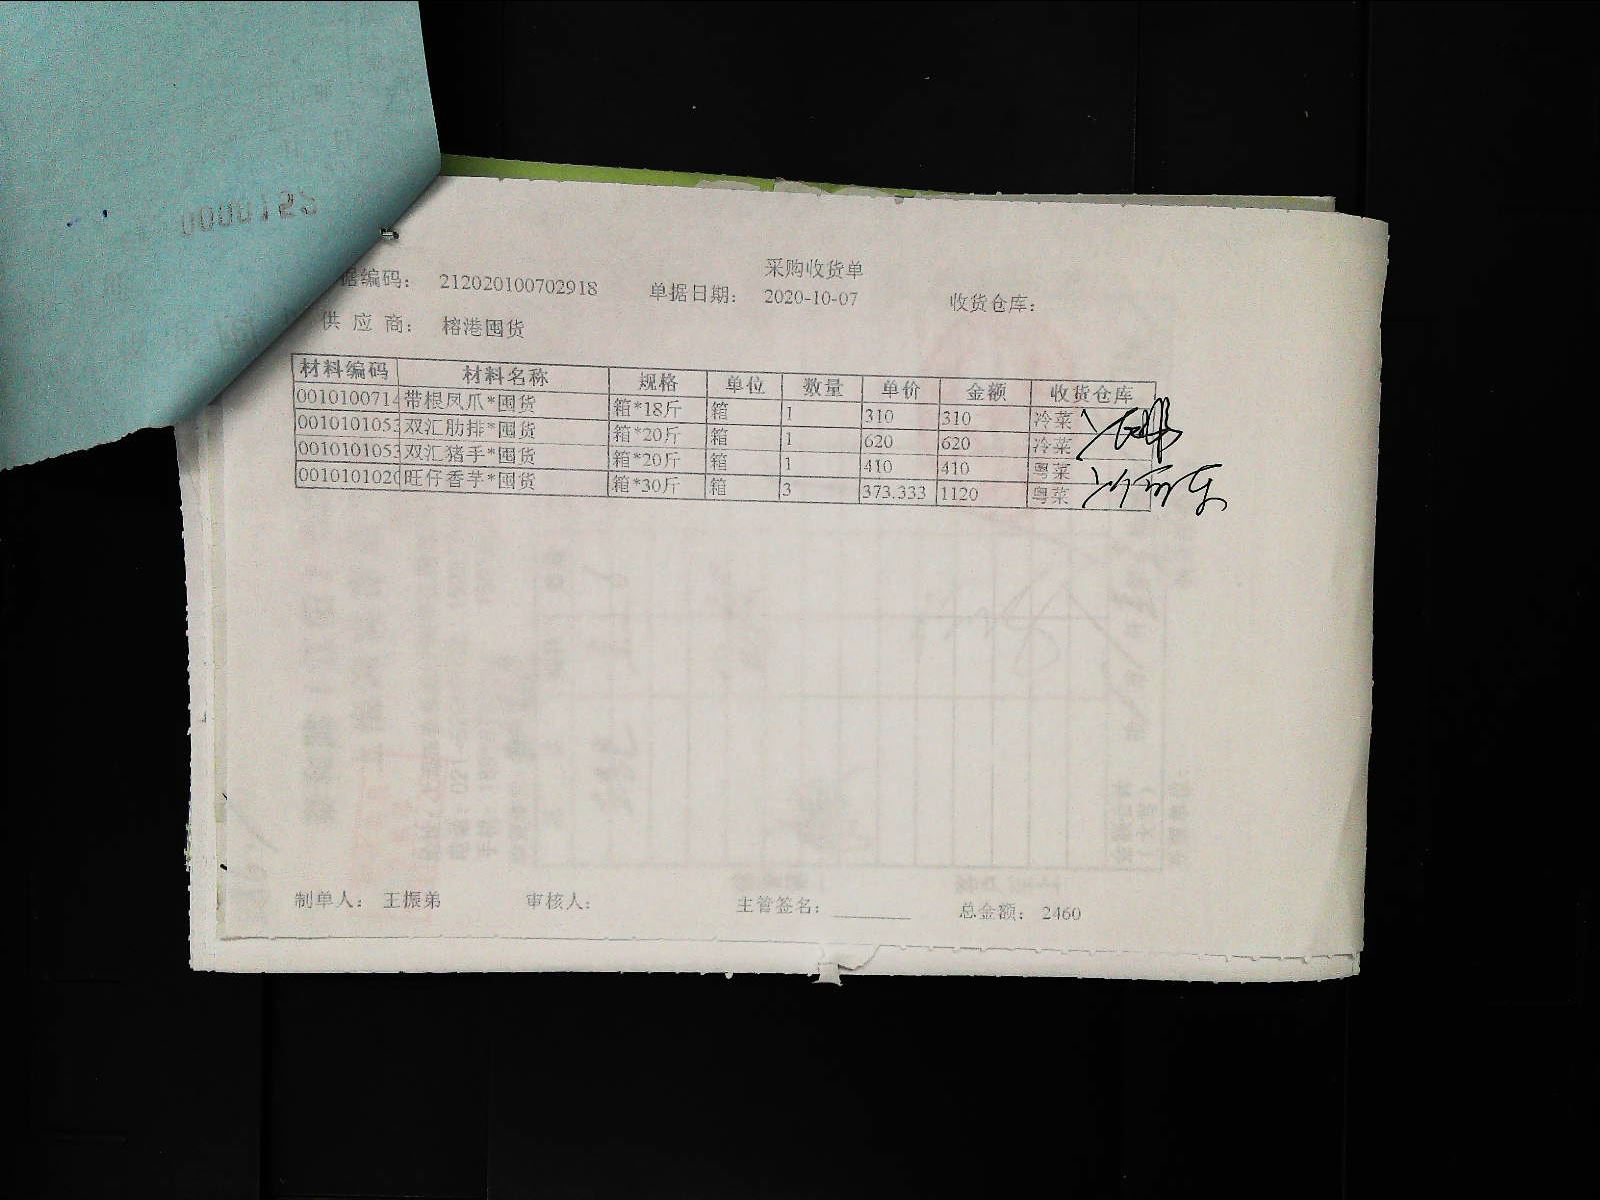 采购收货单
据编码: 212020100702918 单据日期: 2020-10-07 收货仓库:
供 应 商: 榕港囤货
材料编码 材料名称 规格 单位 数量 单价 金额 收货仓库
0010100714 带根凤爪*囤货 箱*18斤 箱 1 310 310 冷菜
0010101053 双汇肋排*囤货 箱*20斤 箱 1 620 620 冷菜
0010101053 双汇猪手*囤货 箱*20斤 箱 1 410 410 粤菜
0010101020 旺仔香芋*囤货 箱*30斤 箱 3 373.333 1120 粤菜
制单人: 王振弟 审核人: 主管签名: 总金额: 2460